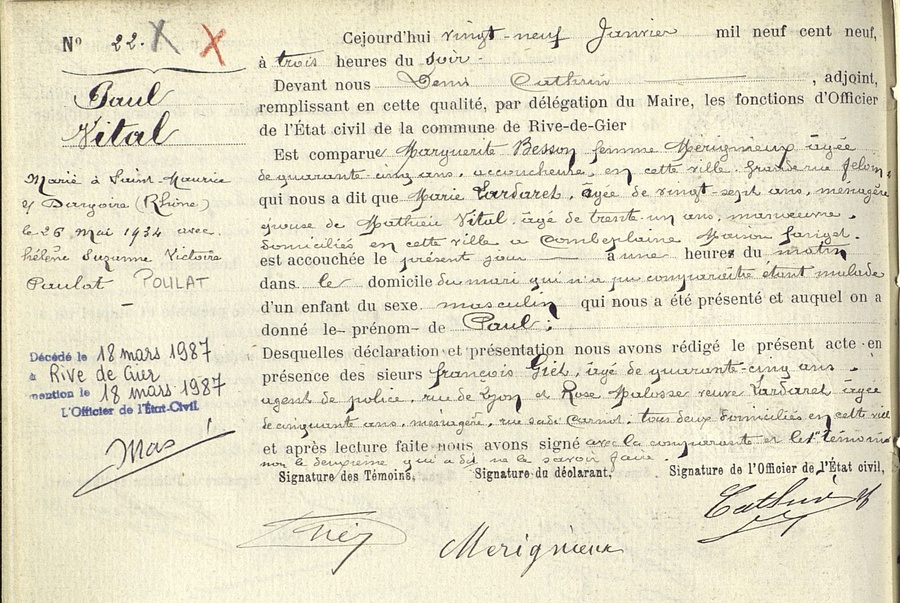 N° 22.
Paul
Vital
Marié à Saint-Maurice
s/ Dargoire (Rhône)
le 26 Mai 1934 avec
hélène Suzanne Victoire
Paulat POULAT
Décédé le 18 mars 1987
à Rive de Gier
mention le 18 mars 1987
L'Officier de l'État-Civil
Mas
Cejourd'hui vingt-neuf Janvier mil neuf cent neuf,
à trois heures du soir.
Devant nous Denis Cathrin, adjoint,
remplissant en cette qualité, par délégation du Maire, les fonctions d'Officier
de l'État civil de la commune de Rive-de-Gier
Est comparue Marguerite Besson femme Mérignieux âgée
de quarante-cinq ans, accoucheuse, en cette ville, Grande rue Feloin,
qui nous a dit que Marie Vardaret, âgée de vingt-sept ans, ménagère
épouse de Mathieu Vital, âgé de trente-un ans, manœuvre,
domiciliés en cette ville a Combeplaine Maison
est accouchée le présent jour à une heures du matin
dans le domicile du mari qui n'a pu comparaître étant malade
d'un enfant du sexe masculin qui nous a été présenté et auquel on a
donné le prénom de Paul.
Desquelles déclaration et présentation nous avons rédigé le présent acte en
présence des sieurs françois Giet, âgé de quarante-cinq ans,
agent de police, rue de Lyon et Rose Malosse veuve Vardaret âgée
de cinquante ans, ménagère, rue sadi Carnot, tous deux domiciliés en cette ville
et après lecture faite nous avons signé avec la comparante et le 1er témoin
non le deuxième qui a dit ne le savoir faire.
Signature des Témoins, Signature du déclarant, Signature de l'Officier de l'État civil,
Mérignieux
Cathrin